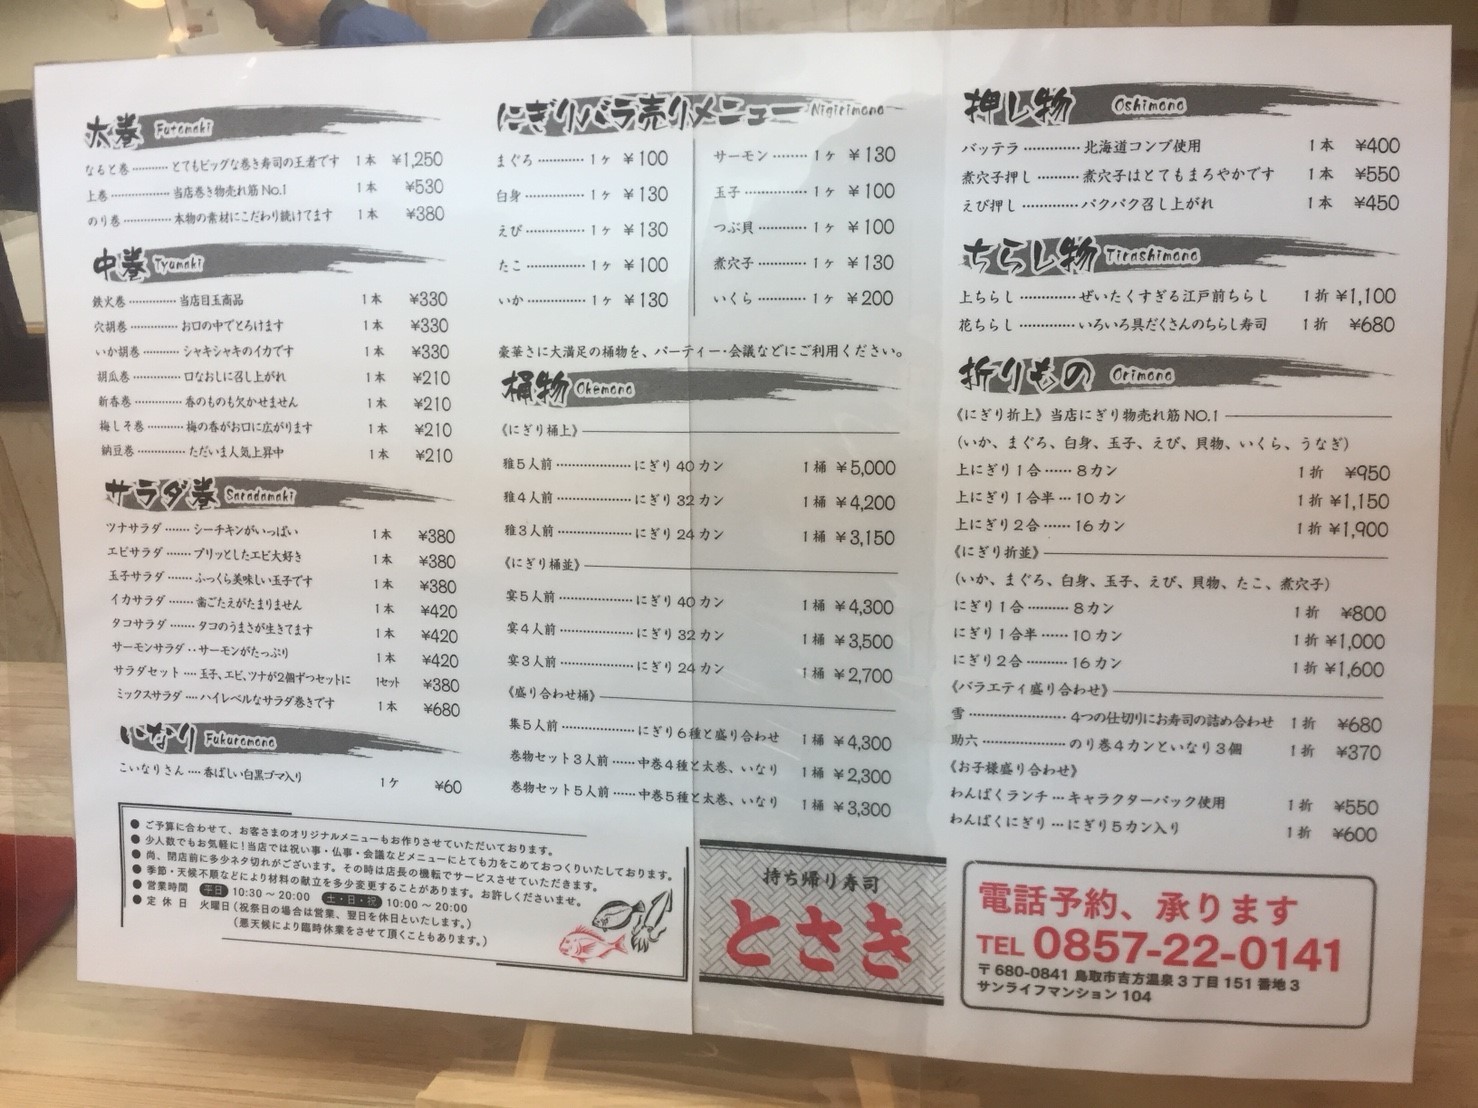 太巻 Futomaki
なると巻 ………… とてもビッグな巻き寿司の王者です 1本 ¥1,250
上巻 ……………… 当店巻き物売れ筋No.1 1本 ¥530
のり巻 …………… 本物の素材にこだわり続けてます 1本 ¥380
中巻 Tyumaki
鉄火巻 …………… 当店目玉商品 1本 ¥330
穴胡巻 …………… お口の中でとろけます 1本 ¥330
いか胡巻 ………… シャキシャキのイカです 1本 ¥330
胡瓜巻 …………… 口なおしに召し上がれ 1本 ¥210
新香巻 …………… 香のものも欠かせません 1本 ¥210
梅しそ巻 ………… 梅の香がお口に広がります 1本 ¥210
納豆巻 …………… ただいま人気上昇中 1本 ¥210
サラダ巻 Saradamaki
ツナサラダ ……… シーチキンがいっぱい 1本 ¥380
エビサラダ ……… プリッとしたエビ大好き 1本 ¥380
玉子サラダ ……… ふっくら美味しい玉子です 1本 ¥380
イカサラダ ……… 歯ごたえがたまりません 1本 ¥420
タコサラダ ……… タコのうまさが生きてます 1本 ¥420
サーモンサラダ ‥ サーモンがたっぷり 1本 ¥420
サラダセット …‥ 玉子、エビ、ツナが2個ずつセットに 1セット ¥380
ミックスサラダ …‥ ハイレベルなサラダ巻きです 1本 ¥680
いなり Fukuromono
こいなりさん …‥ 香ばしい白黒ゴマ入り 1ヶ ¥60
● ご予算に合わせて、お客さまのオリジナルメニューもお作りさせていただいております。
● 少人数でもお気軽に!当店では祝い事・仏事・会議などメニューにとても力をこめておつくりいたしております。
● 尚、閉店前に多少ネタ切れがございます。その時は店長の機転でサービスさせていただきます。
● 季節・天候不順などにより材料の献立を多少変更することがあります。お許しくださいませ。
● 営業時間 平日 10:30～20:00 土・日・祝 10:00～20:00
● 定休日 火曜日(祝祭日の場合は営業、翌日を休日といたします。)
(悪天候により臨時休業をさせて頂くこともあります。)
にぎりバラ売りメニュー Nigirimono
まぐろ ………… 1ヶ ¥100
白身 …………… 1ヶ ¥130
えび …………… 1ヶ ¥130
たこ …………… 1ヶ ¥100
いか …………… 1ヶ ¥130
サーモン ……… 1ヶ ¥130
玉子 …………… 1ヶ ¥100
つぶ貝 ………… 1ヶ ¥100
煮穴子 ………… 1ヶ ¥130
いくら ………… 1ヶ ¥200
豪華さに大満足の桶物を、パーティー・会議などにご利用ください。
桶物 Okemono
《にぎり桶上》
雅5人前 ………………… にぎり40カン 1桶 ¥5,000
雅4人前 ………………… にぎり32カン 1桶 ¥4,200
雅3人前 ………………… にぎり24カン 1桶 ¥3,150
《にぎり桶並》
宴5人前 ………………… にぎり40カン 1桶 ¥4,300
宴4人前 ………………… にぎり32カン 1桶 ¥3,500
宴3人前 ………………… にぎり24カン 1桶 ¥2,700
《盛り合わせ桶》
集5人前 ………………… にぎり6種と盛り合わせ 1桶 ¥4,300
巻物セット3人前 …… 中巻4種と太巻、いなり 1桶 ¥2,300
巻物セット5人前 …… 中巻5種と太巻、いなり 1桶 ¥3,300
持ち帰り寿司
とさき
押し物 Oshimono
バッテラ ………………… 北海道コンブ使用 1本 ¥400
煮穴子押し ……………… 煮穴子はとてもまろやかです 1本 ¥550
えび押し ………………… パクパク召し上がれ 1本 ¥450
ちらし物 Tirashimono
上ちらし ………………… ぜいたくすぎる江戸前ちらし 1折 ¥1,100
花ちらし ………………… いろいろ具だくさんのちらし寿司 1折 ¥680
折りもの Orimono
《にぎり折上》当店にぎり物売れ筋NO.1
(いか、まぐろ、白身、玉子、えび、貝物、いくら、うなぎ)
上にぎり1合 …… 8カン 1折 ¥950
上にぎり1合半 … 10カン 1折 ¥1,150
上にぎり2合 …… 16カン 1折 ¥1,900
《にぎり折並》
(いか、まぐろ、白身、玉子、えび、貝物、たこ、煮穴子)
にぎり1合 ……… 8カン 1折 ¥800
にぎり1合半 …… 10カン 1折 ¥1,000
にぎり2合 ……… 16カン 1折 ¥1,600
《バラエティ盛り合わせ》
雪 ……………………… 4つの仕切りにお寿司の詰め合わせ 1折 ¥680
助六 …………………… のり巻4カンといなり3個 1折 ¥370
《お子様盛り合わせ》
わんぱくランチ … キャラクターパック使用 1折 ¥550
わんぱくにぎり … にぎり5カン入り 1折 ¥600
電話予約、承ります
TEL 0857-22-0141
〒680-0841 鳥取市吉方温泉3丁目151番地3
サンライフマンション104